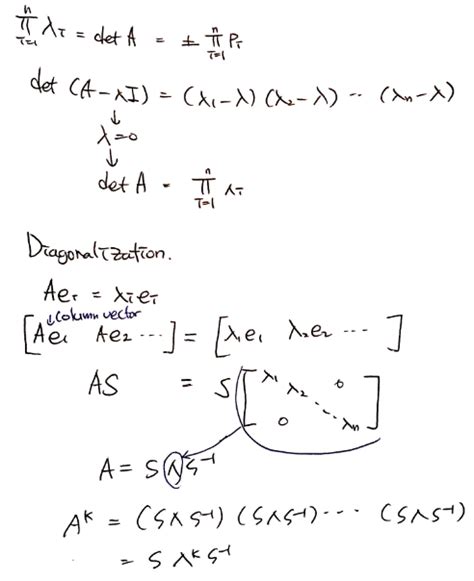 ∏_{i=1}^{n} λi = det A = ± ∏_{i=1}^{n} Pi
det (A-λI) = (λ1-λ)(λ2-λ) ‥ (λn-λ)
↓
λ=0
↓
det A = ∏_{i=1}^{n} λi
Diagonalization.
Aei = λiei
↓column vector
[Ae1 Ae2 ⋯] = [λ1e1 λ2e2 ⋯]
AS = S [λ1 λ2 ⋱ λn 0 0]
A = SΛS⁻¹
Aᵏ = (SΛS⁻¹)(SΛS⁻¹)⋯(SΛS⁻¹)
= SΛᵏS⁻¹